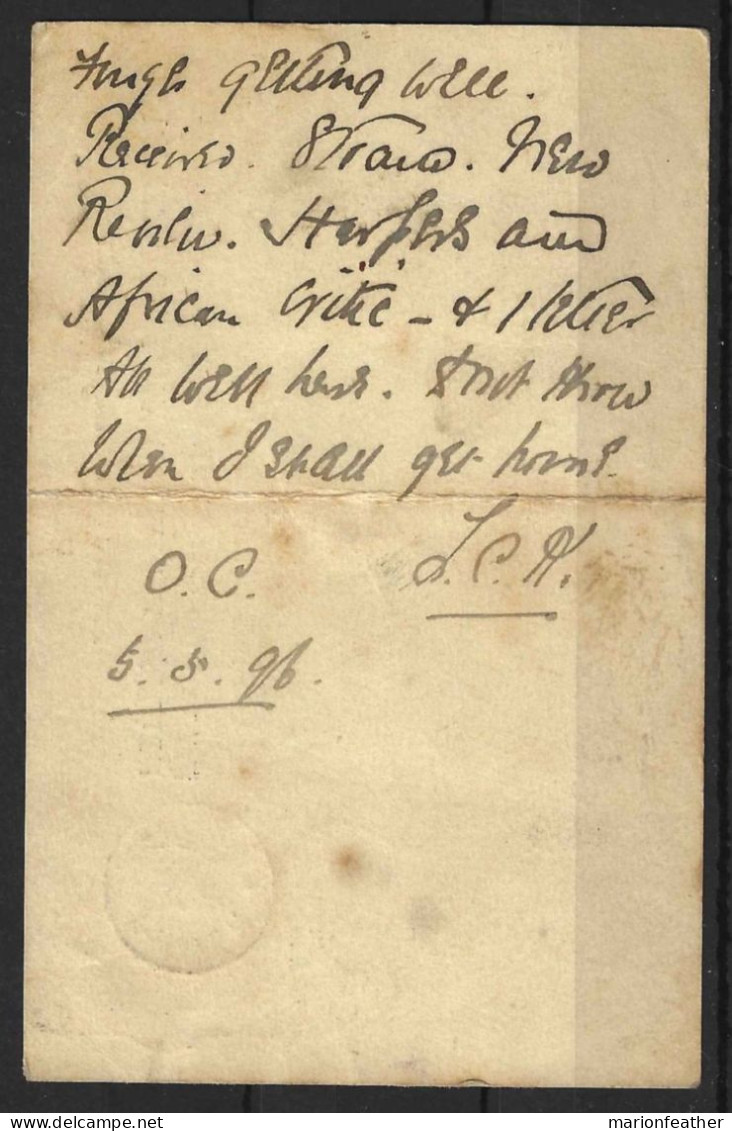 getting well.
Received. Strand. New
Review. Harpers and
African Critic – & 1 letter
All well here. Dont know
When I shall get home.
O.C. L.C.H.
5.5.96.
marionfeather